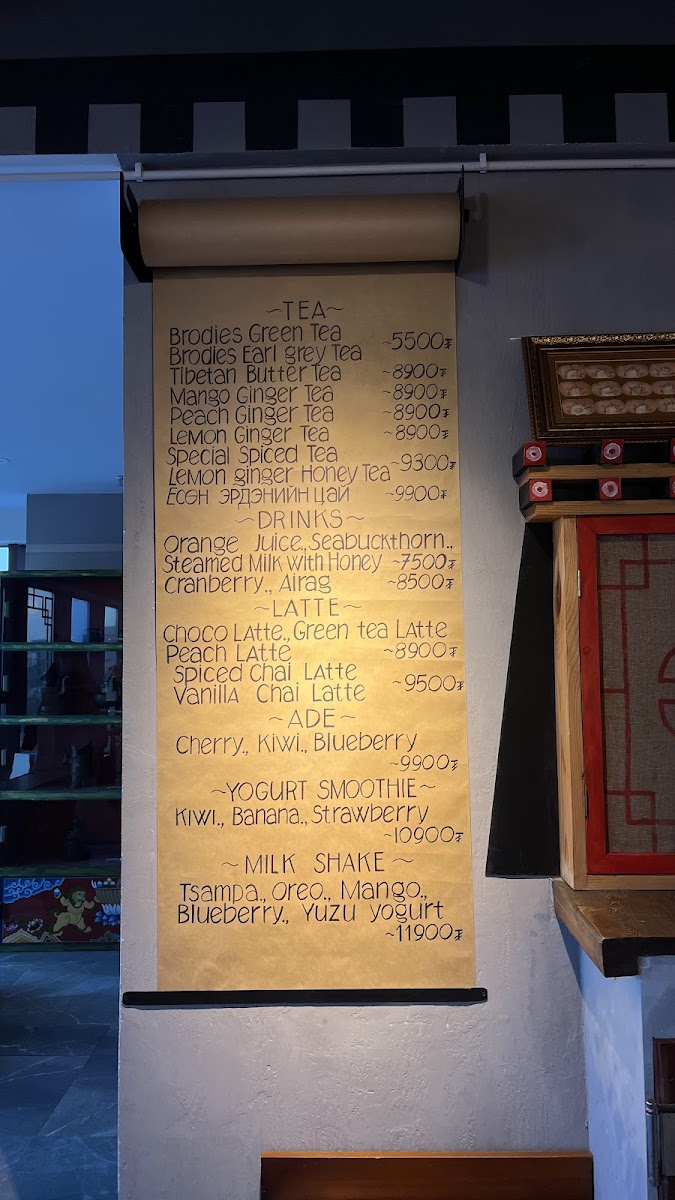 ~TEA~
Brodies Green Tea
Brodies Earl grey Tea ~5500₮
Tibetan Butter Tea ~8900₮
Mango Ginger Tea ~8900₮
Peach Ginger Tea ~8900₮
Lemon Ginger Tea ~8900₮
Special Spiced Tea
Lemon ginger Honey Tea ~9300₮
ЕСӨН ЭРДЭНИЙН ЦАЙ ~9900₮
~DRINKS~
Orange Juice., Seabuckthorn.,
Steamed Milk with Honey ~7500₮
Cranberry., Airag ~8500₮
~LATTE~
Choco Latte., Green tea Latte
Peach Latte ~8900₮
Spiced Chai Latte
Vanilla Chai Latte ~9500₮
~ADE~
Cherry., Kiwi., Blueberry
~9900₮
~YOGURT SMOOTHIE~
Kiwi., Banana., Strawberry
~10900₮
~MILK SHAKE~
Tsampa., Oreo., Mango.,
Blueberry., Yuzu yogurt
~11900₮